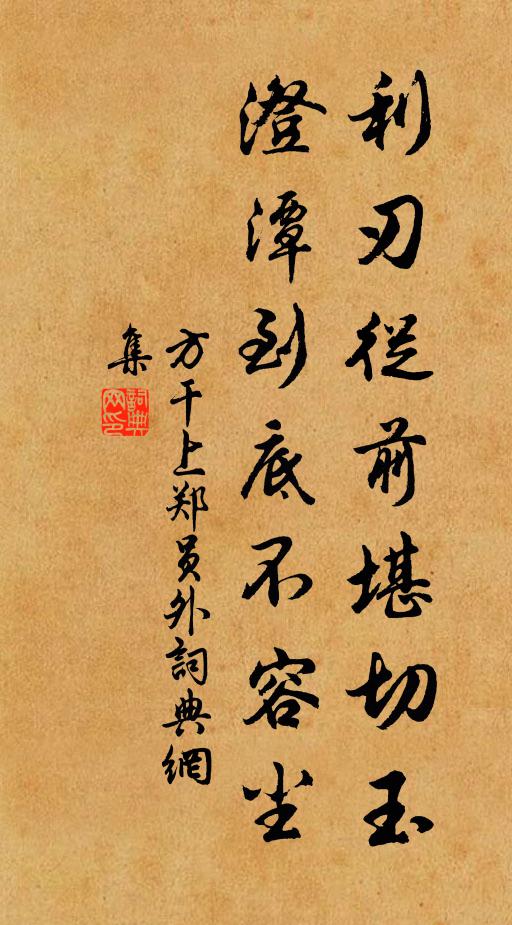 利刃從前堪切玉
澄潭到底不容尘
方干上郑员外詞典網
集
詞典網印